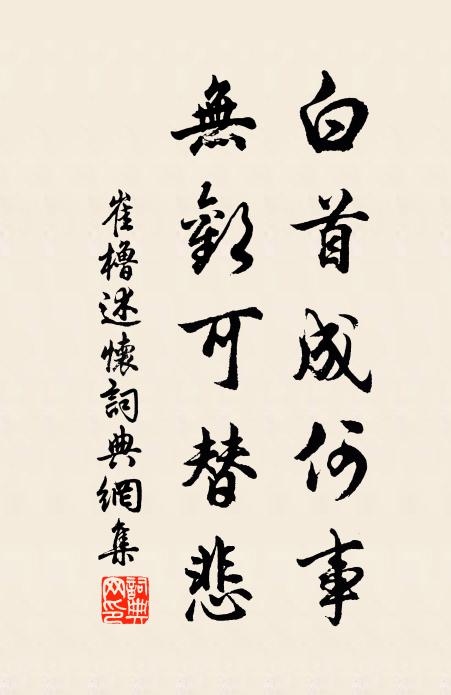 白首成何事
無歡可替悲
崔櫓述懷詞典網集
詞典网印